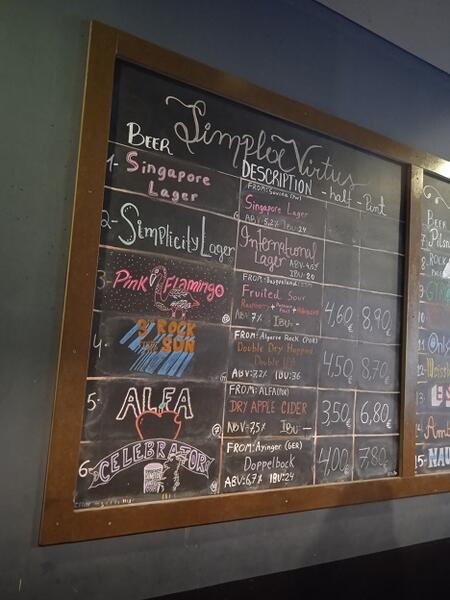 Simplex Virtus
BEER DESCRIPTION - half - Pint
1- Singapore Lager
Singapore Lager
ABV: 5,2% IBU: 24
2- Simplicity Lager
International Lager ABV: 4,6%
IBU: 20
3- Pink Flamingo
FROM:
Fruited Sour
Raspberry + Passion Fruit +
ABV: 7% IBU: -
4,60€ 8,90€
4- 3rd ROCK
from the SUN
FROM: Algarve Rock (POR)
Double Dry Hopped
Double IPA
ABV: 7,2% IBU: 36
4,50€ 8,70€
5- ALFA
FROM: ALFA
DRY APPLE CIDER
ABV= 7,5% IBU: -
3,50€ 6,80€
6- CELEBRATOR
FROM: Ayinger (GER)
Doppelbock
ABV: 6,7% IBU: 24
4,00€ 7,80€
BEER
7- Pilsn
8- ROCK
9
10
11
12- Weissb
13
14- Amb
15- NAU